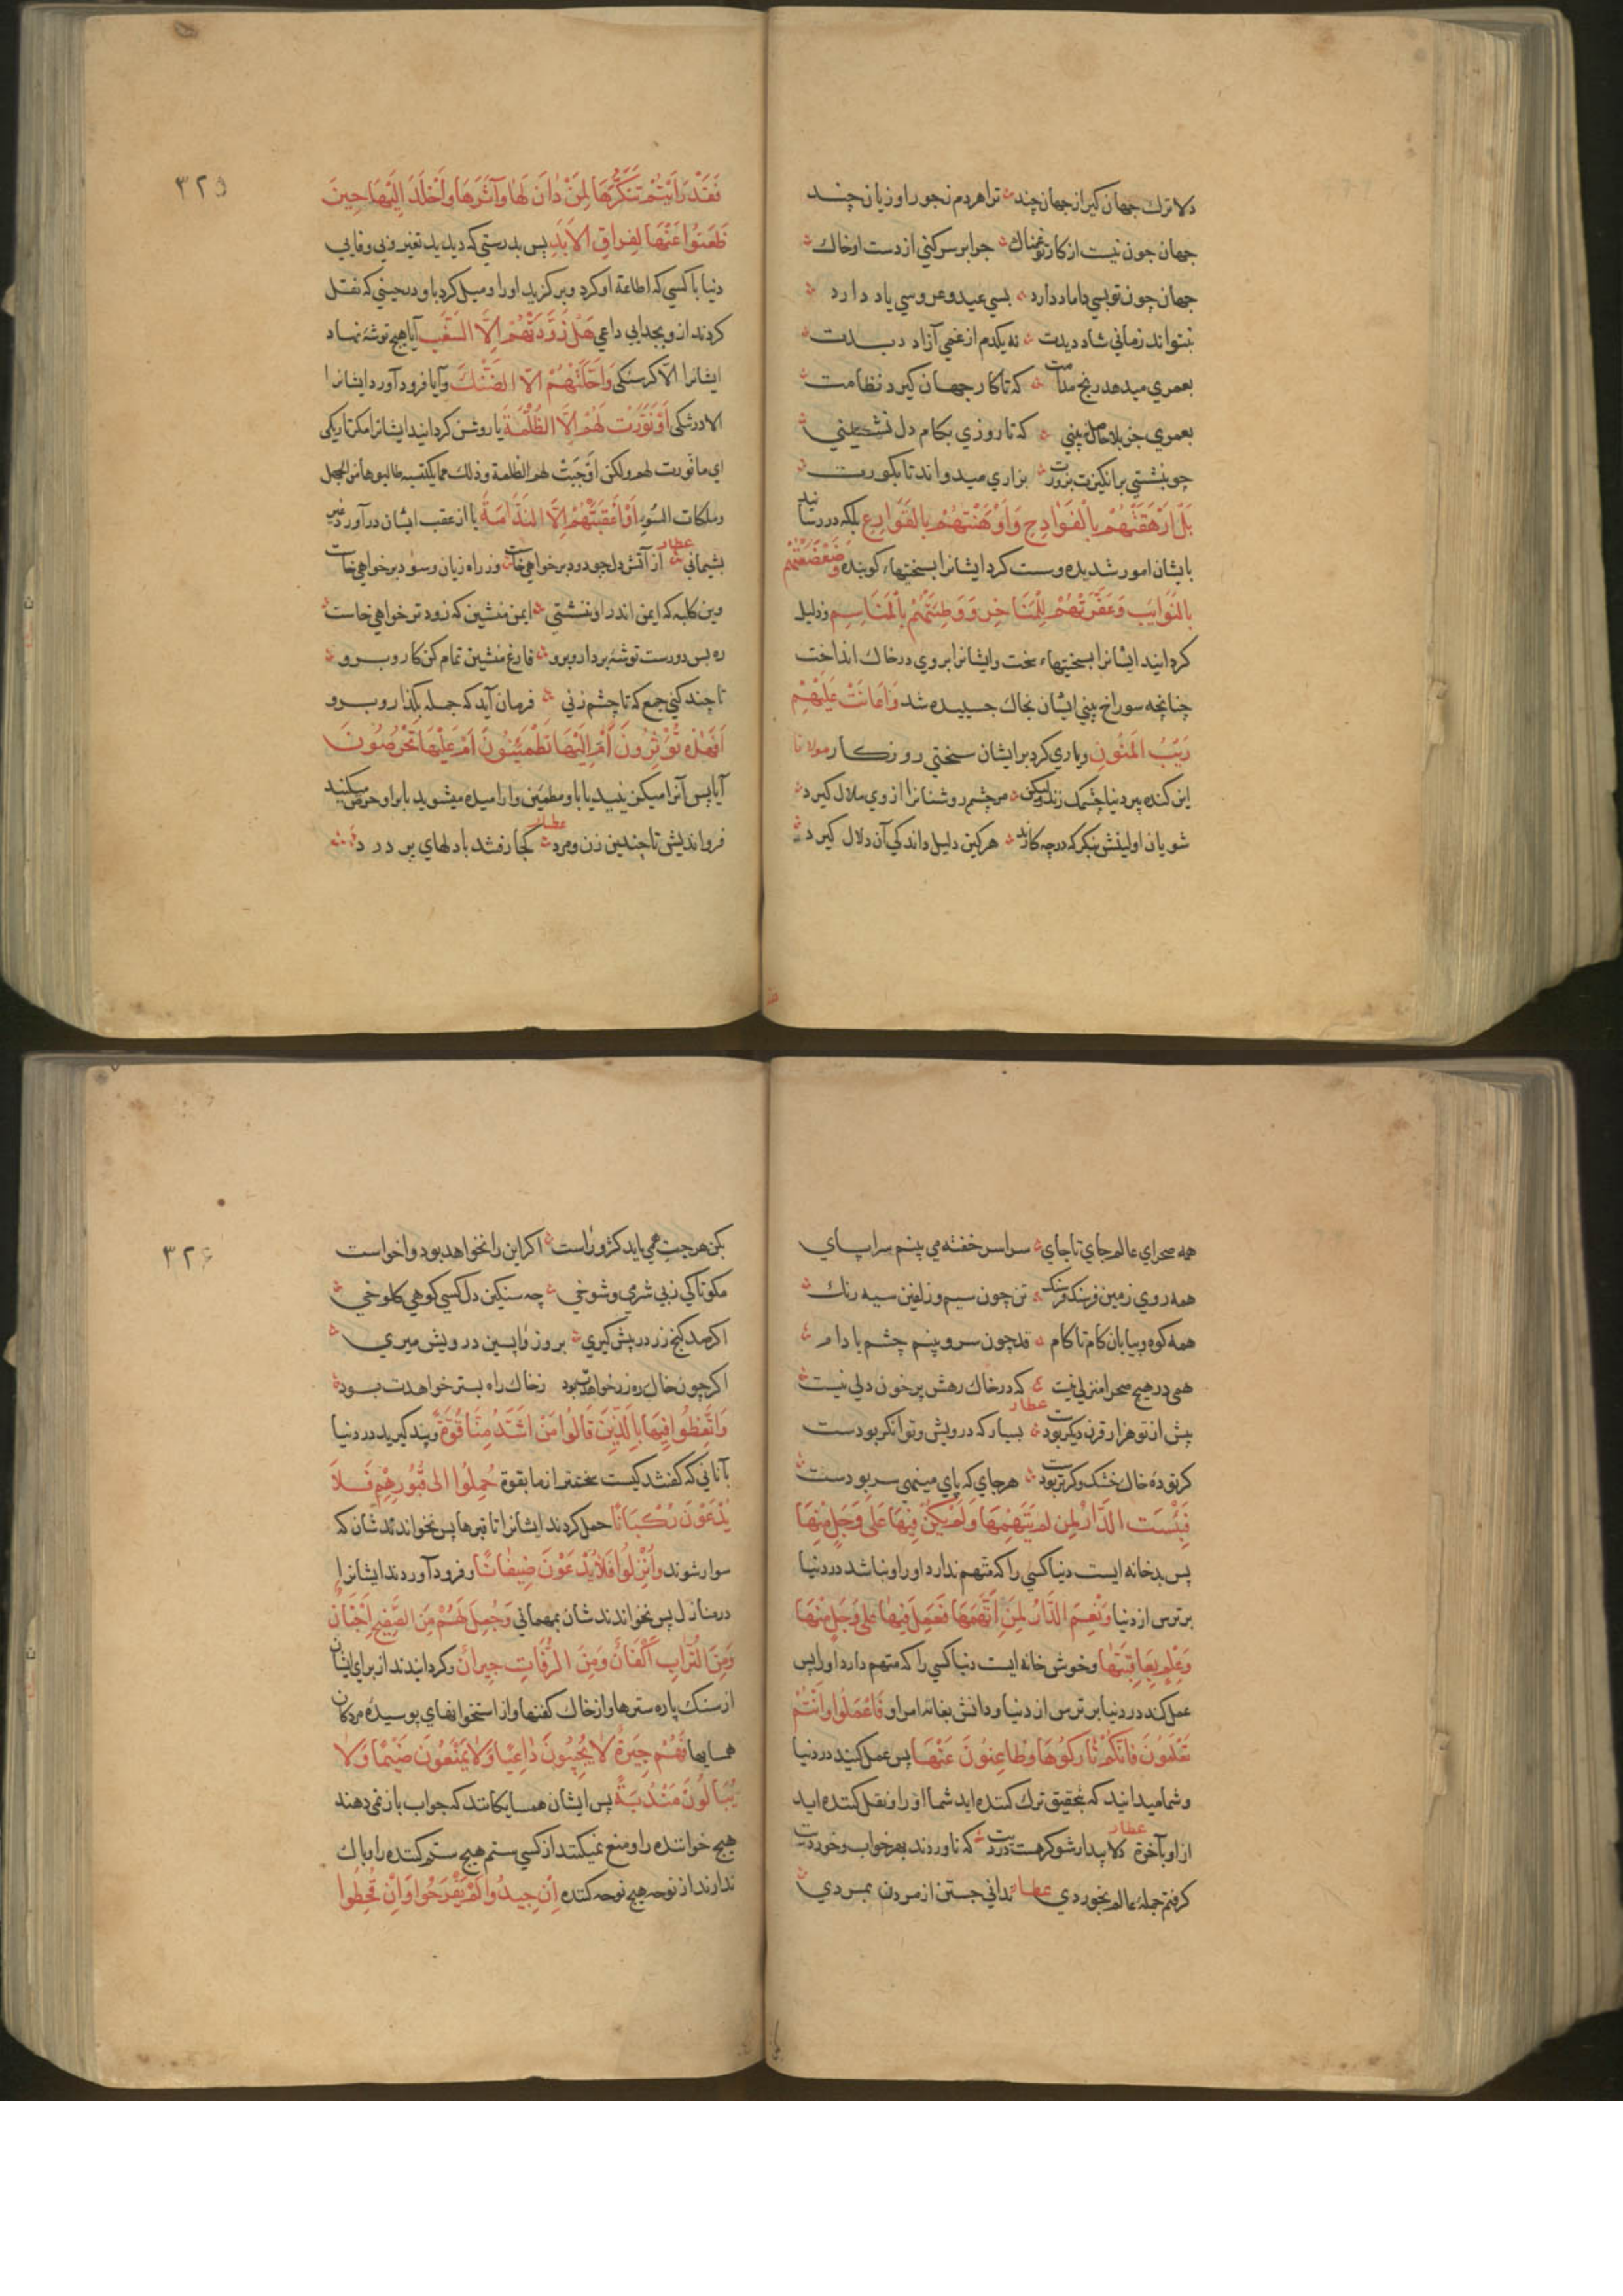 دلا ترك جهان كير از جهان چند ترا هر دم ز جور او زيان چند
جهان چون نيست از كار تو غمناك چرا بر سر كني از دست او خاك
جهان چون تو بسي داماد دارد بسي عيد و عروسي ياد دارد
نتواند زماني شاد ديدت نه يكدم از غمي آزاد ديدت
بعمري ميدهد رنج مدامت كه تا كار جهان كيرد نظامت
بعمري جز بلا حاصل نبيني كه تا روزي بكام دل نشيني
چو بنشستي برانكيزت بزورت بزاري ميدواند تا بكورت
بَلْ اَرْهَقَتْهُمْ بِالْفَوَادِحِ وَاَوْهَنَتْهُمْ بِالْقَوَارِعِ بلكه در رسانيد
بايشان امور شديده و سست كرد ايشانرا بسختيهاء كوبنده وَضَعْضَعَتْهُمْ
بِالنَّوَايِبِ وَعَفَّرَتْهُمْ لِلْمَنَاخِرِ وَوَطِئَتْهُمْ بِالْمَنَاسِمِ و ذليل
كردانيد ايشانرا بسختيهاء سخت و ايشانرا بروي در خاك انداخت
چنانچه سوراخ بيني ايشان بخاك چسبيده شد وَاَعَانَتْ عَلَيْهِمْ
رَيْبَ الْمَنُونِ و ياري كرد بر ايشان سختي روزكار مولانا
اين كنده پير دنيا چشمك زند وليكن مر چشم روشنانرا از وي ملال كيرد
شويان اولينش بنكر كه در چه كارند هر كين دليل داند كي آن دلال كيرد
۳۲۵
فَقَدْ رَاَيْتُمْ تَنَكُّرَهَا لِمَنْ دَانَ لَهَا وَآثَرَهَا وَاَخْلَدَ اِلَيْهَا حِينَ
ظَعَنُوا عَنْهَا لِفِرَاقِ الْاَبَدِ پس بدرستي كه ديديد تغير و بي وفايي
دنيا با كسي كه اطاعة او كرد و بركزيد او را و ميل كرد باو در حيني كه نقل
كردند از و بجدايي داعي هَلْ زَوَّدَتْهُمْ اِلَّا السَّغَبَ آيا هيچ توشه نهاد
ايشانرا الا كرسنكي وَاَحَلَّتْهُمْ اِلَّا الضَّنْكَ و آيا فرود آورد ايشانرا
الا در تنكي اَوْ نَوَّرَتْ لَهُمْ اِلَّا الظُّلْمَةَ يا روشن كردانيد ايشانرا مكر تاريكي
اي ما نورت لهم ولكن اوجبت لهم الظلمة و ذلك مما يكتسبه طالبوها من الجهل
و ملكات السوء اَوْ اَعْقَبَتْهُمْ اِلَّا النَّدَامَةَ يا از عقب ايشان در آورد غير
پشيماني عطار از آتش دل چو دود بر خواهي خاست وز راه زيان و سود بر خواهي خاست
وين كلبه كه ايمن اندر او بنشستي ايمن منشين كه زود تر خواهي خاست
ره بس دورست توشه بردار و برو فارغ منشين تمام كن كار و برو
تا چند كني جمع كه تا چشم زني فرمان آيد كه جمله بكذار و برو
اَفَهٰذِهِ تُؤْثِرُونَ اَمْ اِلَيْهَا تَطْمَئِنُّونَ اَمْ عَلَيْهَا تَحْرِصُونَ
آيا پس آنرا ميكزينيد يا باو مطمئن و آراميده ميشويد يا بر او حرص ميكنيد
فرو انديش تا چندين زن و مرد عطار كجا رفتند با دلهاي پر درد
همه صحراي عالم جاي تا جاي سراسر خفته مي بينم سراپاي
همه روي زمين فرسنك فرسنك تن چون سيم و زلفين سيه رنك
همه كوه و بيابان كام تا كام قد چون سرو بينم چشم بادام
همي در هيچ صحرا منزلي نيست كه در خاك رهش پر خون دلي نيست
پيش از تو هزار قرن ديكر بودست عطار بسيار كه درويش و توانكر بودست
كر توده خاك خشك و كر تر بودست هر جاي كه پاي مينهي سر بودست
فَبِئْسَتِ الدَّارُ لِمَنْ لَمْ يَتَّهِمْهَا وَلَمْ يَكُنْ فِيهَا عَلَى وَجَلٍ مِنْهَا
پس بد خانه ايست دنيا كسي را كه متهم ندارد او را و نباشد در دنيا
بر ترس از دنيا وَنِعْمَ الدَّارُ لِمَنِ اتَّهَمَهَا فَعَمِلَ فِيهَا عَلَى وَجَلٍ مِنْهَا
وَعَلِمَ بِعَاقِبَتِهَا و خوش خانه ايست دنيا كسي را كه متهم دارد او را پس
عمل كند در دنيا بر ترس از دنيا و دانش بغايه امر او فَاعْمَلُوا وَاَنْتُمْ
تَعْلَمُونَ فَاِنَّكُمْ تَارِكُوهَا وَظَاعِنُونَ عَنْهَا پس عمل كنيد در دنيا
و شما ميدانيد كه بتحقيق ترك كننده ايد شما او را و نقل كننده ايد
از او بآخرة عطار دلا بيدار شو كر هست دردت كه ناوردند بهر خواب و خوردت
كرفتم جمله عالم بخوردي عطار نداني جستن از مردن بمردي
۳۲۶
بكن هر چت همي بايد كژ و راست اكر اين را نخواهد بود و اخواست
مكو تا كي ز بي شرمي و شوخي چه سنكين دل كسي كوهي كلوخي
اكر صد كنج زر در پيش كيري بروز واپسين درويش ميري
اكر چون خاك ره زر خواهدت بود ز خاك راه بستر خواهدت بود
وَاتَّعِظُوا فِيهَا بِالَّذِينَ قَالُوا مَنْ اَشَدُّ مِنَّا قُوَّةً و پند كيريد در دنيا
بآناني كه كفتند كيست سختتر از ما بقوة حُمِلُوا اِلَى قُبُورِهِمْ فَلَا
يُدْعَوْنَ رُكْبَانًا حمل كردند ايشانرا تا قبرها پس نخواندندشان كه
سوار شوند وَاُنْزِلُوا فَلَا يُدْعَوْنَ ضِيفَانًا و فرود آوردند ايشانرا
در منازل پس نخواندندشان بمهماني وَجُعِلَ لَهُمْ مِنَ الصَّفِيحِ اَجْنَانٌ
وَمِنَ التُّرَابِ اَكْفَانٌ وَمِنَ الرُّفَاتِ جِيرَانٌ و كردانيدند از براي ايشان
از سنك پاره سترها و از خاك كفنها و از استخوانهاي پوسيده مردكان
همسايها فَهُمْ جِيرَةٌ لَا يُجِيبُونَ دَاعِيًا وَلَا يَمْنَعُونَ ضَيْمًا وَلَا
يُبَالُونَ مَنْدَبَةً پس ايشان همسايكانند كه جواب باز نمي دهند
هيچ خواننده را و منع نميكنند از كسي ستم هيچ ستم كننده را و باك
ندارند از نوحه هيچ نوحه كننده اِنْ جِيدُوا لَمْ يَفْرَحُوا وَاِنْ قُحِطُوا